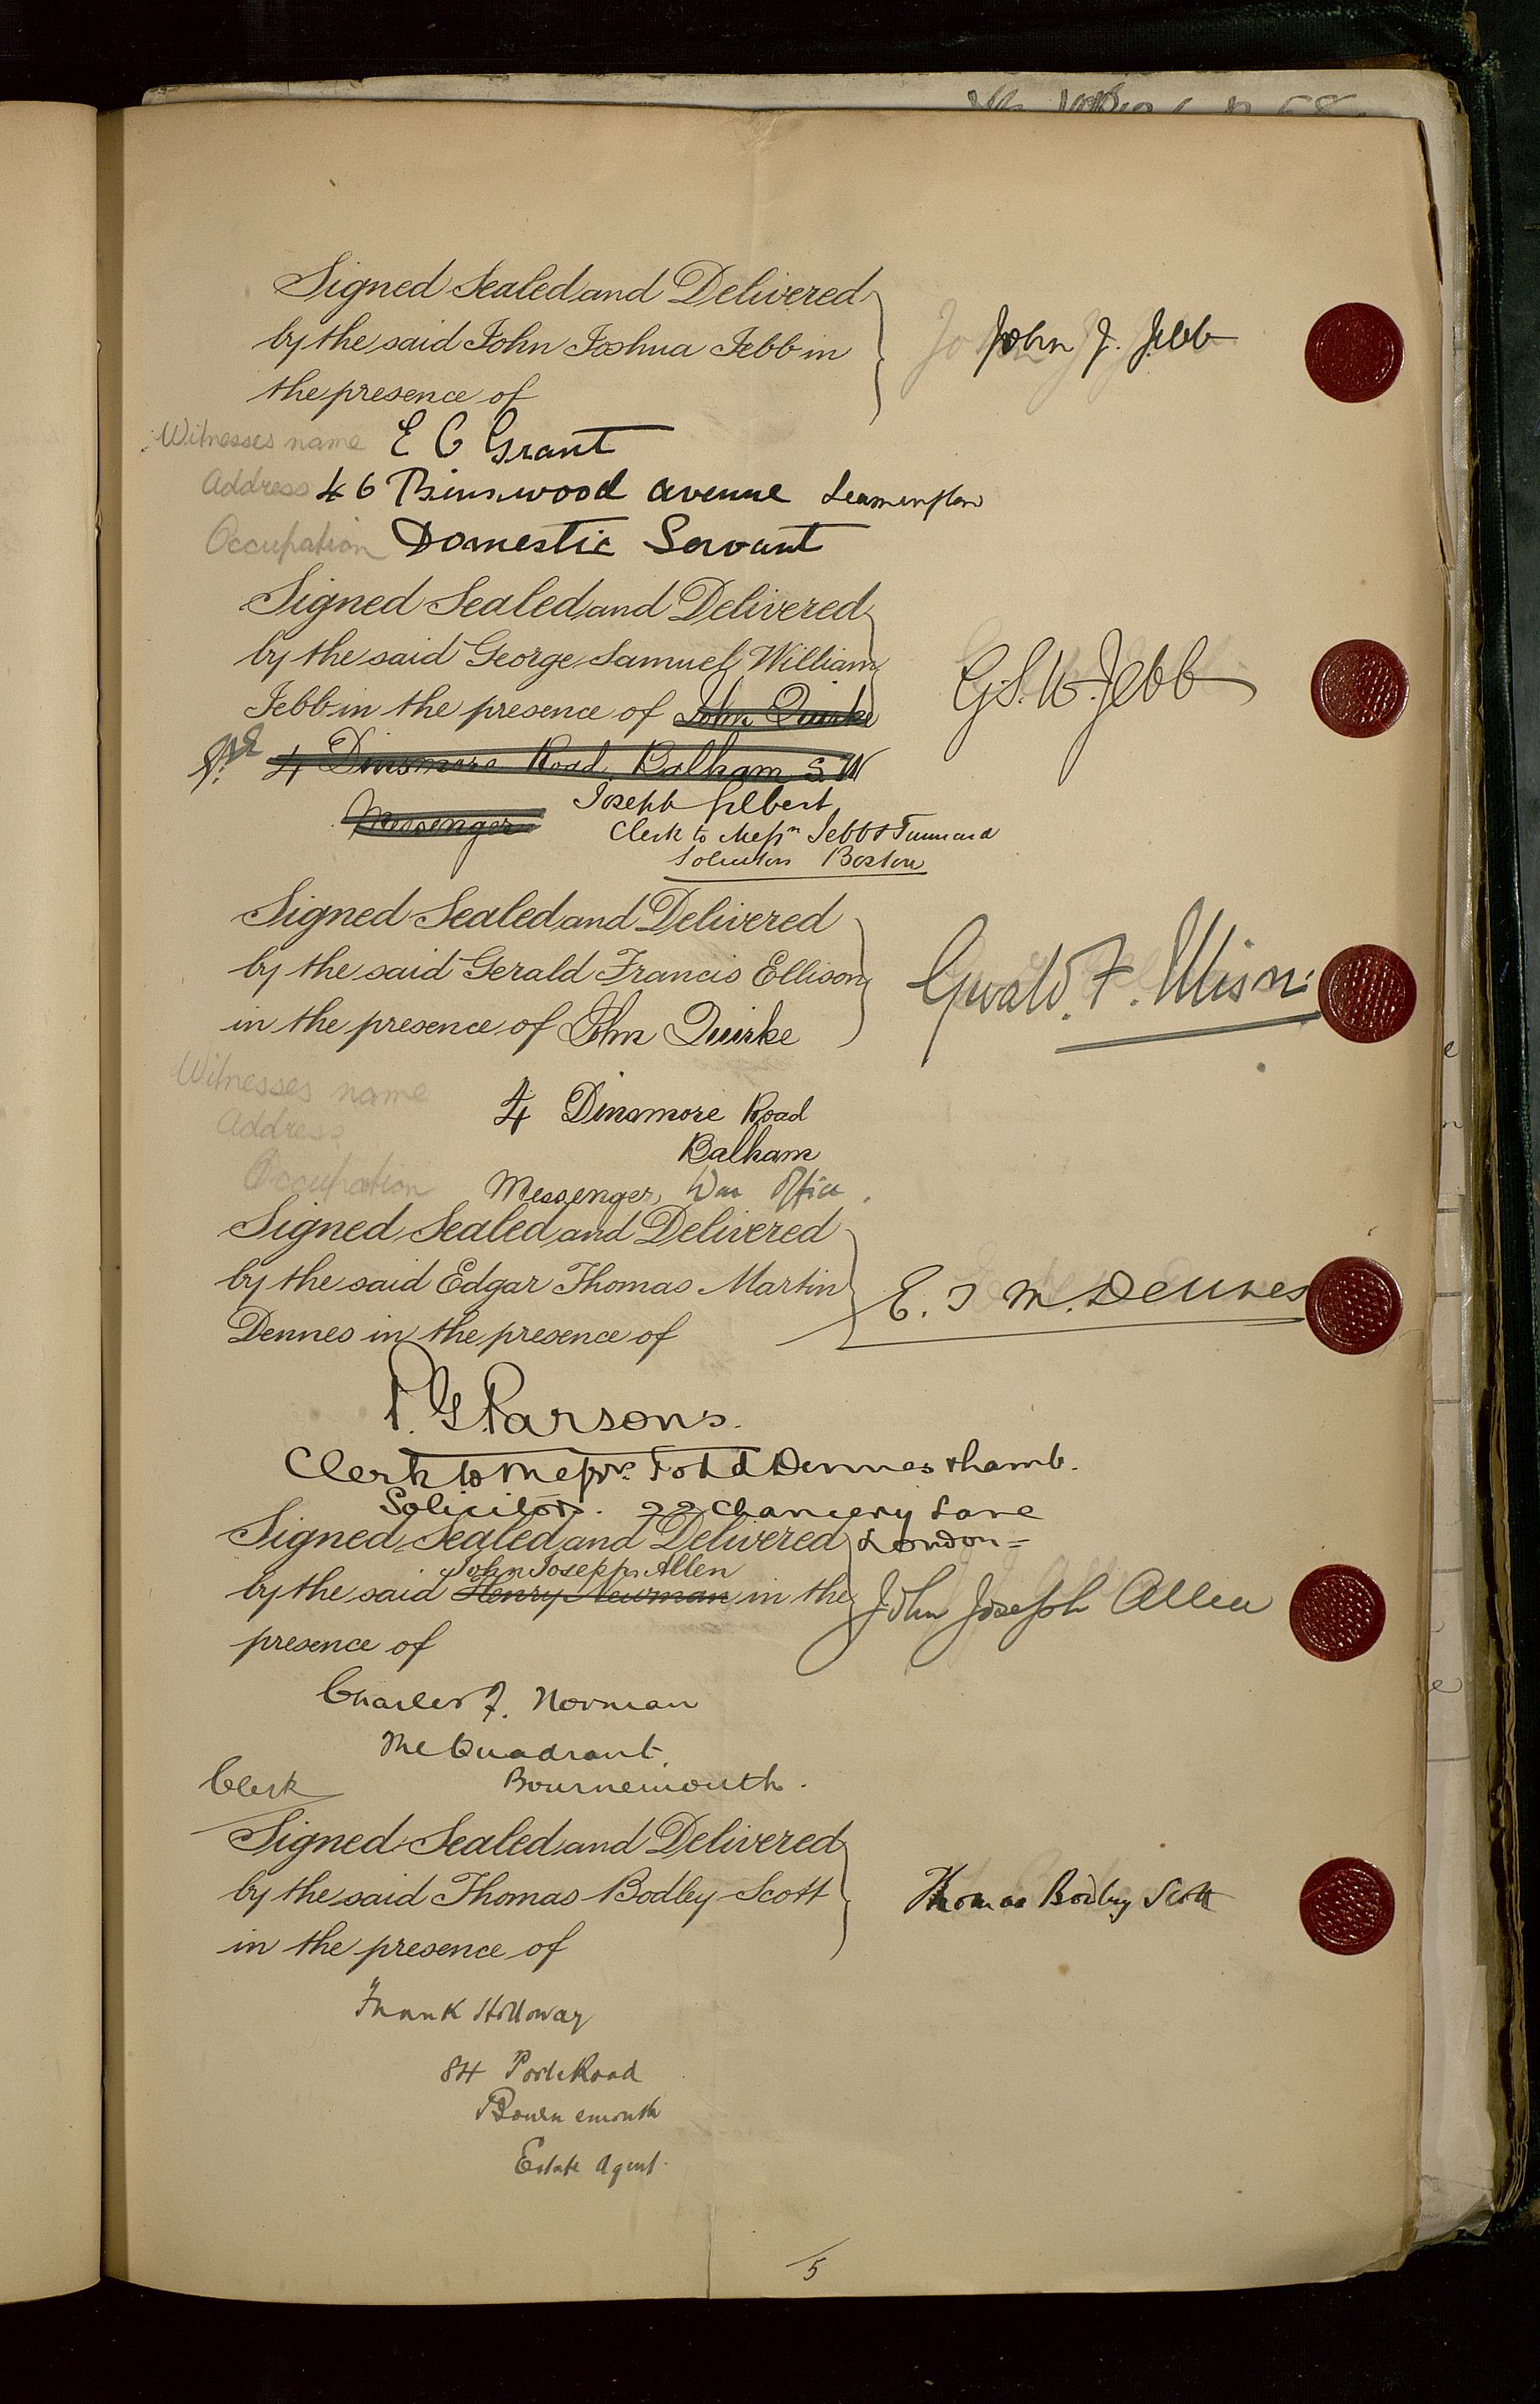 Signed Sealed and Delivered
by the said John Joshua Jebb in
the presence of
John J. Jebb
Witnesses name E C Grant
Address 46 Binswood avenue Leamington
Occupation Domestic Servant
Signed Sealed and Delivered
by the said George Samuel William
Jebb in the presence of John Quirke
G. S. W. Jebb
4 Dinsmore Road, Balham S.W
Messenger
Joseph Gilbert
Clerk to Messrs Jebb & Tunnard
Solicitors Boston
Signed Sealed and Delivered
by the said Gerald Francis Ellison
in the presence of John Quirke
Gerald. F. Ellison
Witnesses name
Address
4 Dinsmore Road
Balham
Occupation Messenger, War Office.
Signed Sealed and Delivered
by the said Edgar Thomas Martin
Dennes in the presence of
E. T M. Dennes
P. G. Parsons.
Clerk to Messrs. Ford Dennes & Lamb.
Solicitors. 22 Chancery Lane
London =
Signed Sealed and Delivered
John Joseph Allen
by the said Henry Newman in the
presence of
John Joseph Allen
Charles F. Norman
The Quadrant
Bournemouth.
Clerk
Signed Sealed and Delivered
by the said Thomas Bodley Scott
in the presence of
Thomas Bodley Scott
Frank Holloway
84 Poole Road
Bournemouth
Estate Agent.
5